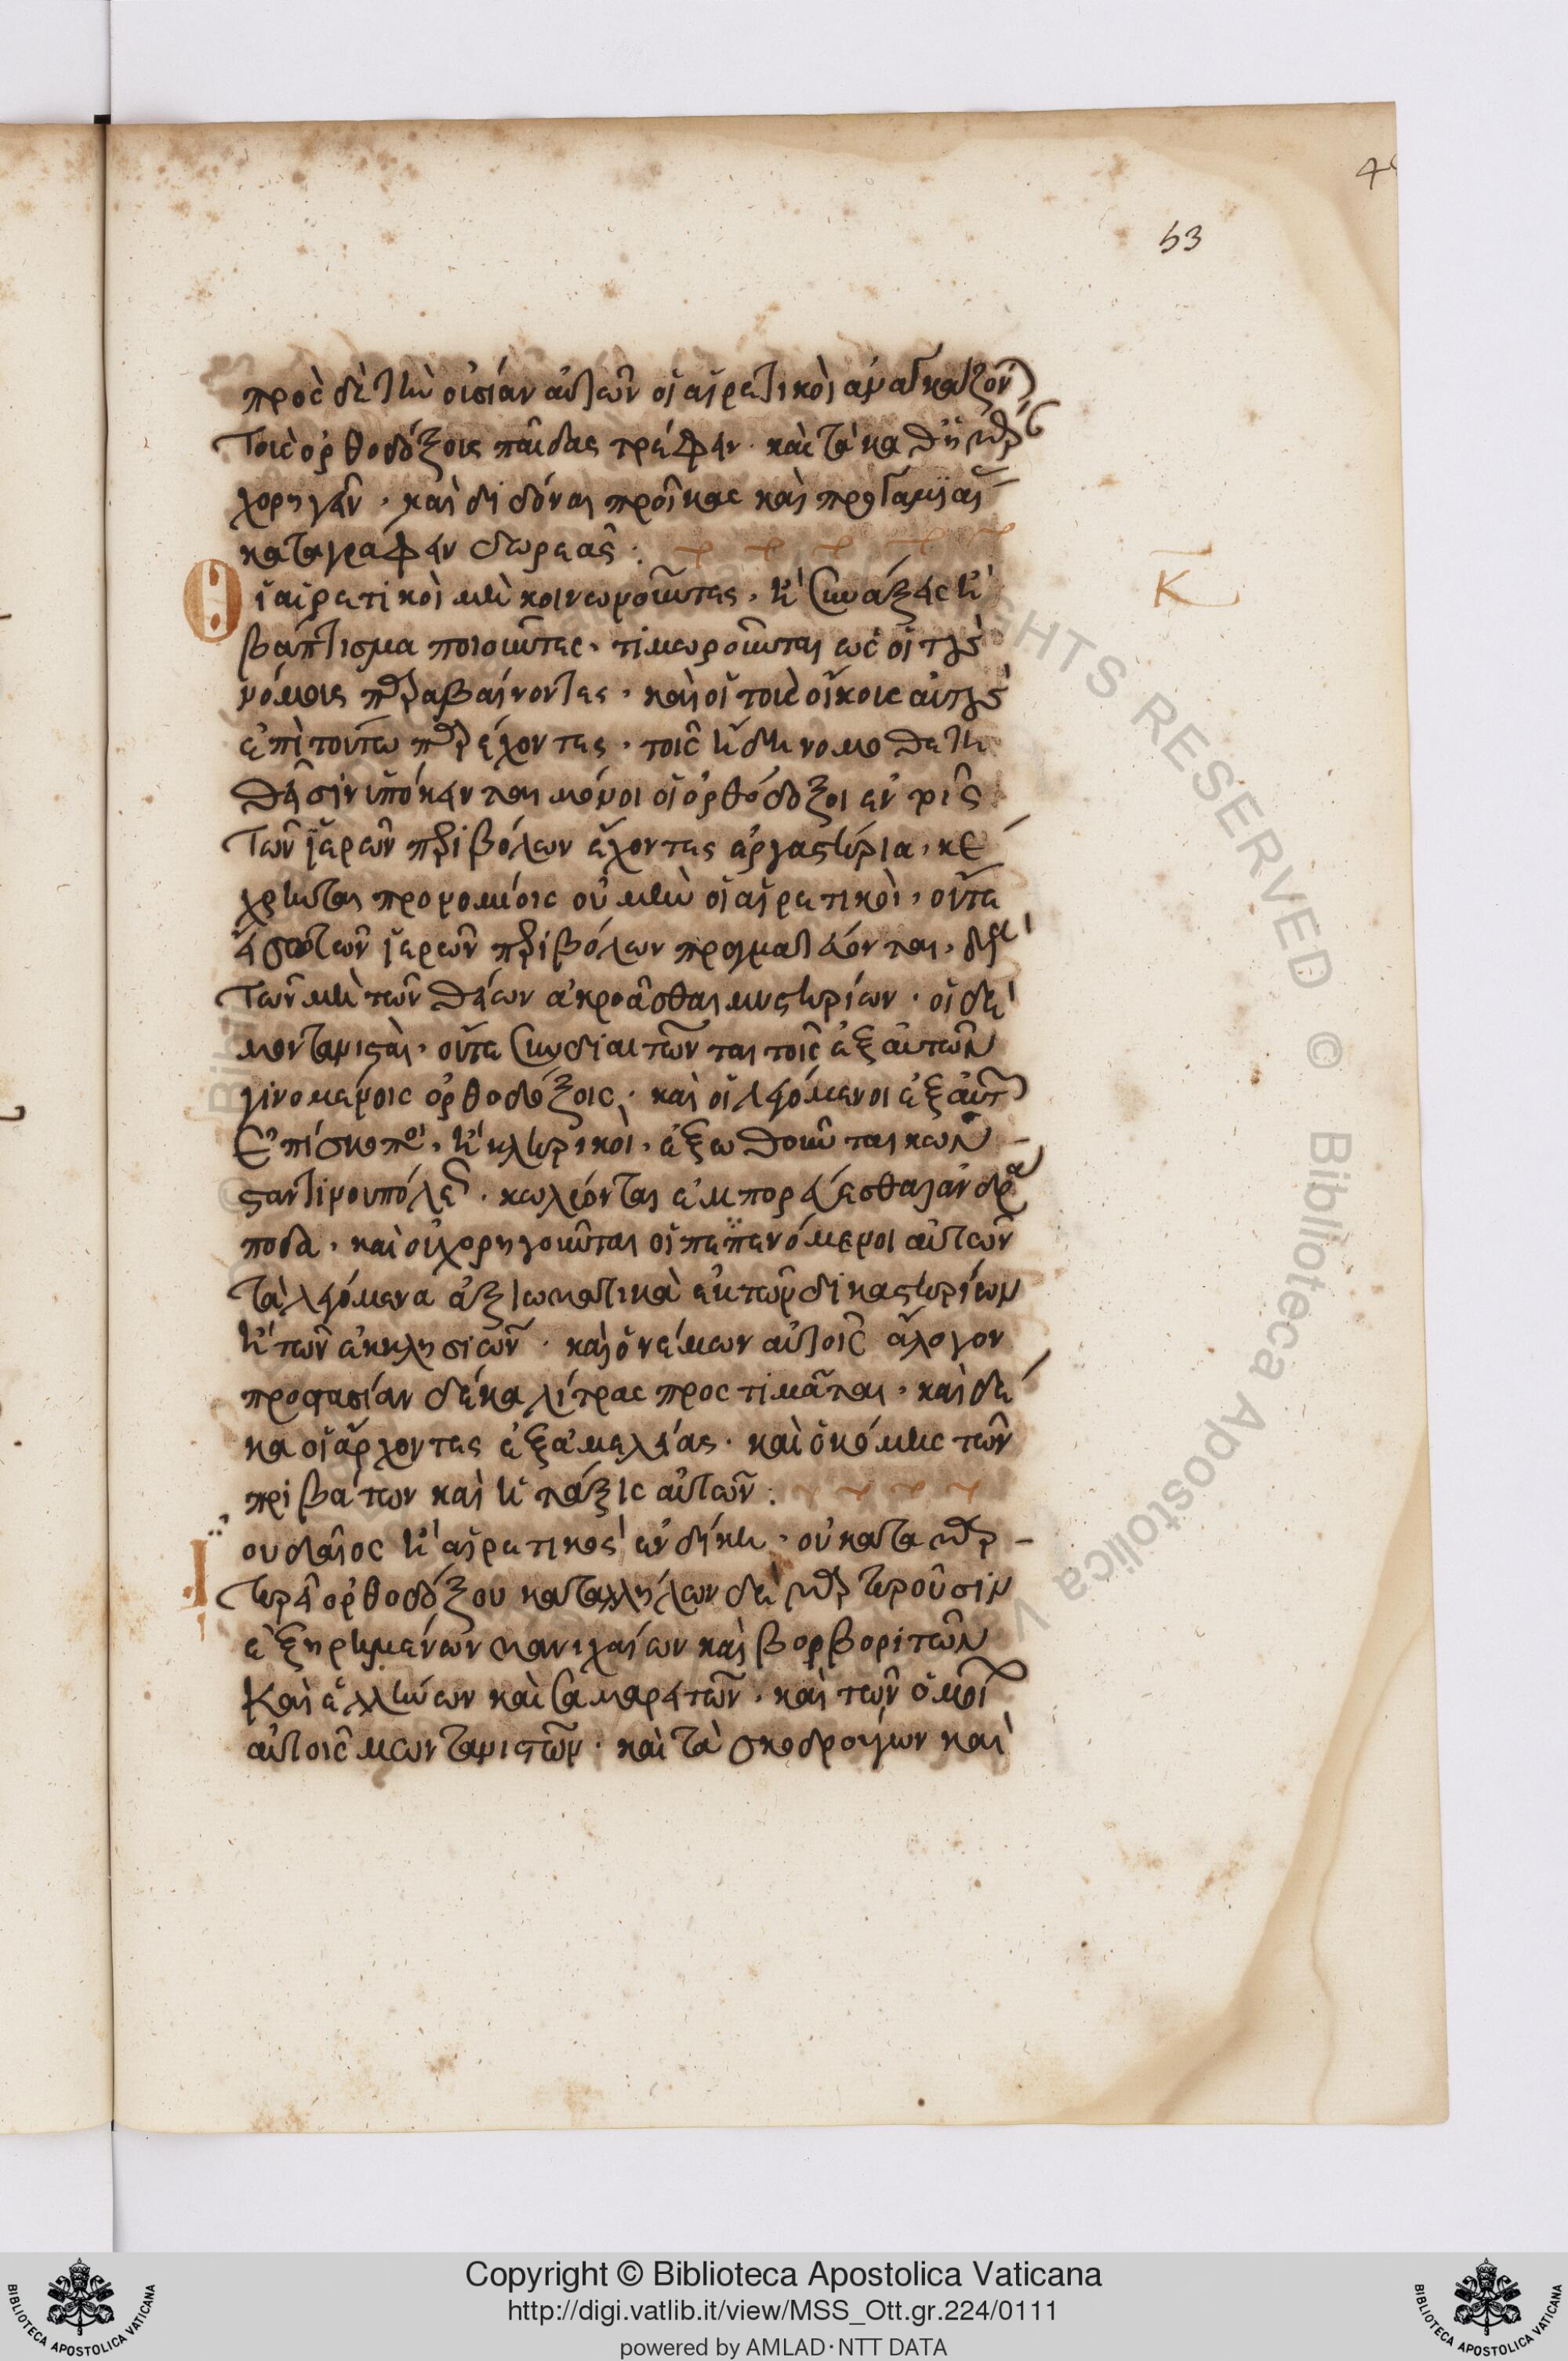 53
πρὸς δὲ τὴν οὐσίαν αὐτῶν οἱ αἱρετικοὶ ἀναγκάζον
τοῖς ὀρθοδόξοις παῖδας τρέφειν· καὶ τὰ
χορηγεῖν, καὶ διδόναι προῖκας καὶ προγαμιαί
καταγράφειν δωρεάς:
Οἱ αἱρετικοὶ μὴ κοινωνοῦντες, ἢ συνάξεις ἢ
βάπτισμα ποιοῦντες, τιμωροῦνται ὡς οἱ τοὺς
νόμους παραβαίνοντες, καὶ οἱ τοὺς οἴκους αὐτοὺς
ἐπὶ τούτω παρέχοντες, τοῖς ἤδη νομοθετη
θεῖσιν ὑπόκεινται μόνοι οἱ ὀρθόδοξοι ἐντὸς
τῶν ἱερῶν περιβόλων ἔχοντες ἐργαστήρια, κέ
χρηνται προνομίοις οὐ μὴν οἱ αἱρετικοὶ, οὔτε
εἴσω τῶν ἱερῶν περιβόλων πραγματεύονται, διὰ
τῶν μὴ τῶν θείων ἀκροᾶσθαι μυστηρίων· οἱ δὲ
μοντανισταὶ, οὔτε συνδιαιτῶνται τοῖς ἐξ αὐτῶν
γινομένοις ὀρθοδόξοις, καὶ οἱ λεγόμενοι ἐξ αὐτ
ἐπίσκοποι, ἢ κληρικοὶ, ἐξωθοῦνται κων
σταντινουπόλε, κωλύονται ἐμπορεύεσθαι ἀνδρά
ποδα, καὶ οὐ χορηγοῦνται οἱ πενόμενοι αὐτῶν
τὰ λεγόμενα ἀξιωματικὰ ἐκ τῶν δικαστηρίων
ἢ τῶν ἐκκλησιῶν· καὶ ὁ νέμων αὐτοῖς ἄλογον
προστασίαν δέκα λίτρας προστιμᾶται, καὶ δέ
κα οἱ ἄρχοντες ἐξ ἀμελείας· καὶ ὁ κόμης τῶν
πριβάτων καὶ ἡ τάξις αὐτῶν:
Ἰουδαῖος ἢ αἱρετικὸς ἐν δίκη, οὐ καταμαρ
τυρεῖ ὀρθοδόξου καταλλήλων δὲ μαρτυροῦσιν
ἐξῃρημένων μανιχαίων καὶ βορβοριτῶν
καὶ ἑλλήνων καὶ σαμαρειτῶν, καὶ τῶν ὁμοί
αὐτοῖς μωντανιστῶν· καὶ τασκοδρούγων καὶ
Κ
Copyright © Biblioteca Apostolica Vaticana
http://digi.vatlib.it/view/MSS_Ott.gr.224/0111
powered by AMLAD·NTT DATA
BIBLIOTECA APOSTOLICA VATICANA
BIBLIOTECA APOSTOLICA VATICANA